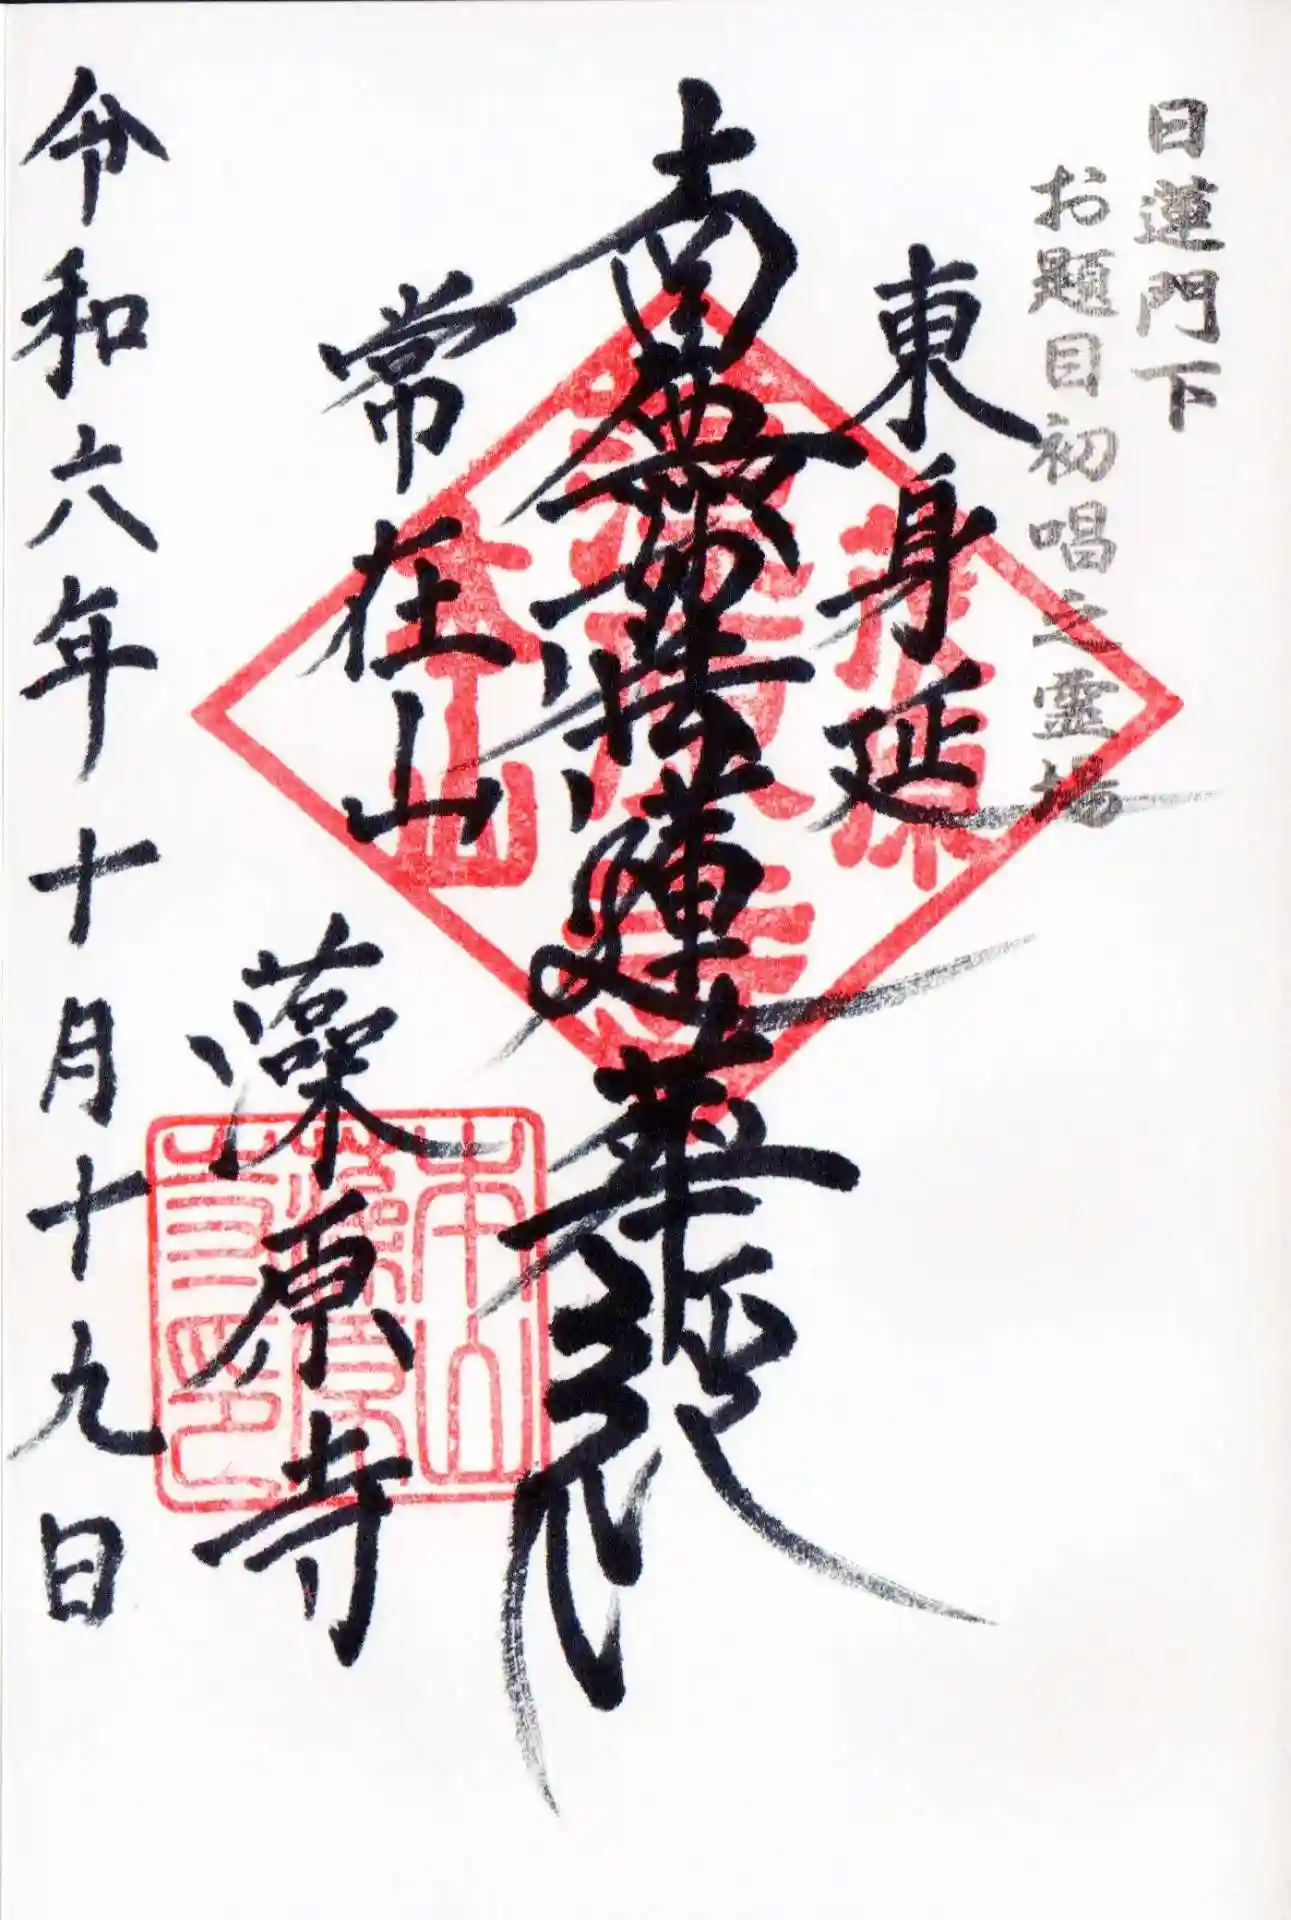 日蓮門下
お題目初唱之霊場
東身延
南無妙法蓮華経
常在山
藻原寺
令和六年十月十九日
本山
藻原
寺印